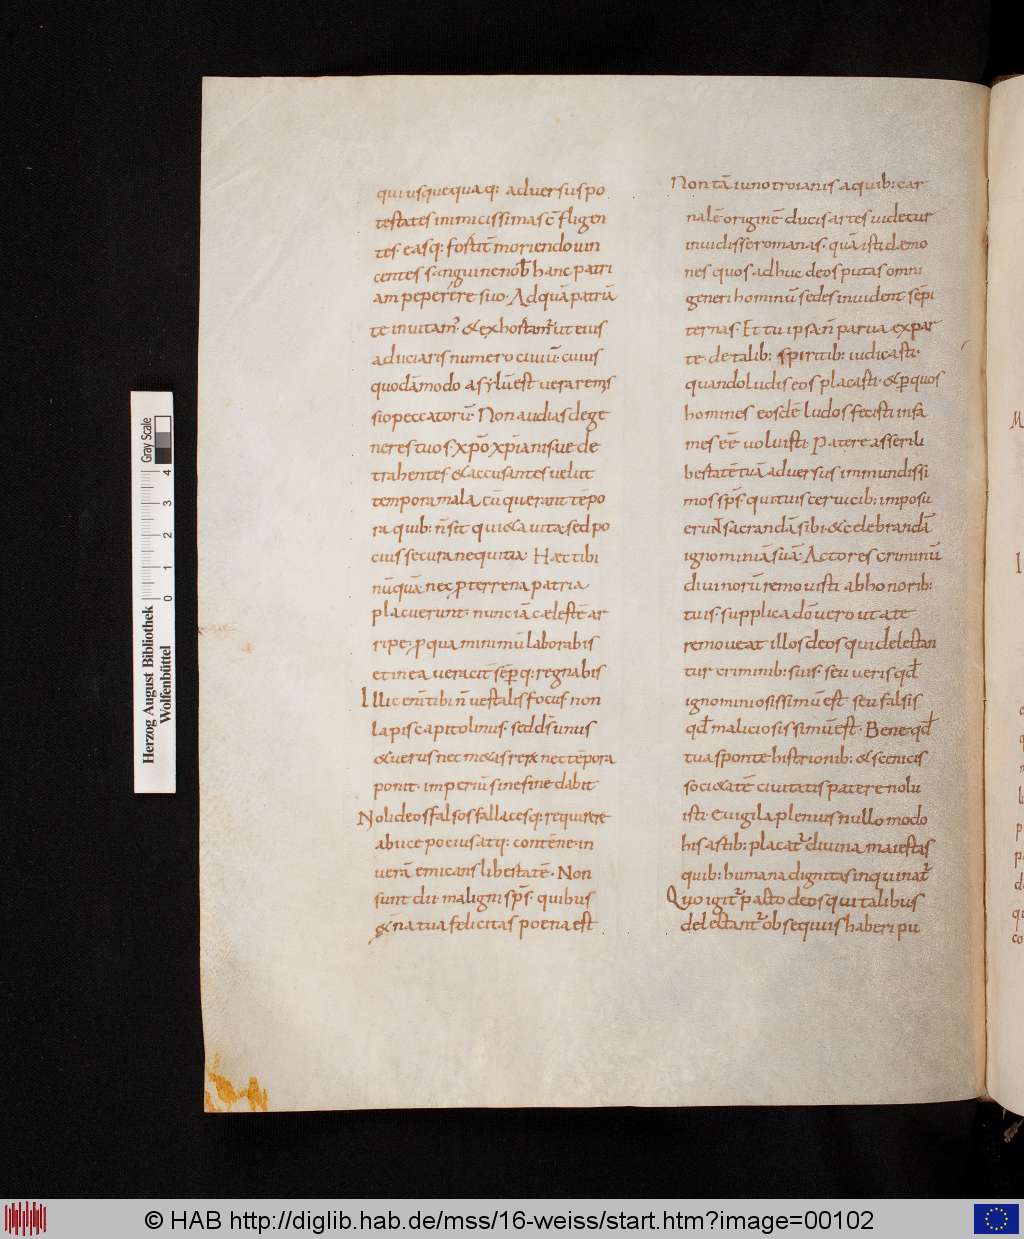 qui usquequaq: aduersus po
testates inimicissimas cōfligen
tes easq: fortit̄ moriendo uin
centes sanguine nob̄ hanc patri
am peperere suo. Ad quā patriā
te inuitam᾽ & exhortam᾽ ut eius
adiciaris numero ciuiū cuius
quodāmodo asylū est uera remis
sio peccatorū. Non audias dege
neres tuos. xp̄o xp̄ianisue de
trahentes & accusantes uelut
tempora mala cū querant tēpo
ra quib: n̄ sit quieta uita sed po
cius secura nequitia. Haec tibi
nūquā nec p terrena patria
placuerunt. nunc iā caelestē ar
ripe, p qua minimū laborabis
et in ea ueracit̄ sēp q: regnabis
Illic enī tibi n̄ uestalis focus non
lapis capitolinus. sed ds̄ unus
& uerus nec metas rerum nec tēpora
ponit. imperiū sine fine dabit
Noli deos falsos fallacesq: requirere
abice pocius atq: contēne in
uerā emicans libertatē. Non
sunt dii maligni sp̄s. quibus
et̄na tua felicitas poena est
Non tā iuno troianis a quib: car
nalē originē ducis artes uidetur
inuidisse romanas. quā isti daemo
nes quos adhuc deos putas omni
generi hominū sedes inuident sēpi
ternas. Et tu ipsa n̄ parua ex par
te de talib: spiritib: iudicasti.
quando ludis eos placasti. & p quos
homines eosdē ludos fecisti infa
mes eē uoluisti. Patere asseri li
bertatē tuā aduersus immundissi
mos sp̄s. qui tuis ceruicib: imposu
erunt sacrandā sibi & celebrandā
ignominiā suā. Actores criminū
diuinorū remouisti ab honorib:
tuis. supplica dō uero ut a te
remoueat illos deos qui delectan
tur criminib: suis. seu ueris qđ
ignominiosissimū est seu falsis
qđ maliciosissimū est. Bene qđ
tua sponte histrionib: & scenicis
societatē ciuitatis patere nolu
isti. Euigila plenius nullo modo
his artib: placat᾽ diuina maiestas
quib: humana dignitas inquinat᾽
Quo igit᾽ pacto deos qui talibus
delectant᾽ obsequiis haberi pu
Herzog August Bibliothek
Wolfenbüttel
0 1 2 3 4
Gray Scale
© HAB http://diglib.hab.de/mss/16-weiss/start.htm?image=00102